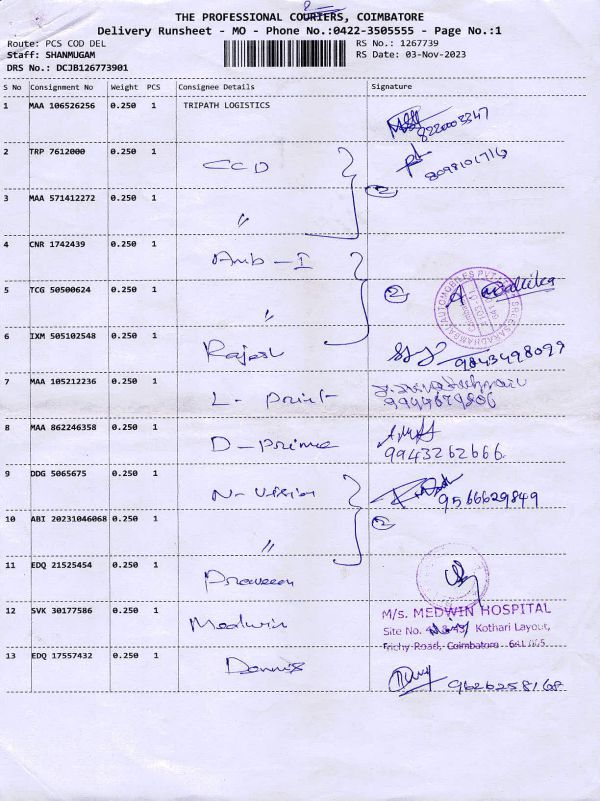 THE PROFESSIONAL COURIERS, COIMBATORE
Delivery Runsheet - MO - Phone No.:0422-3505555 - Page No.:1
Route: PCS COD DEL
Staff: SHANMUGAM
DRS No.: DCJB126773901
RS No.: 1267739
RS Date: 03-Nov-2023
S No Consignment No Weight PCS Consignee Details Signature
1 MAA 106526256 0.250 1 TRIPATH LOGISTICS
8220003347
2 TRP 7612000 0.250 1 CCD
8098101716
3 MAA 571412272 0.250 1 〃 2
4 CNR 1742439 0.250 1 Amb - I
5 TCG 50500624 0.250 1 〃 2
6 IXM 505102548 0.250 1 Rajesh 9843498099
7 MAA 105212236 0.250 1 L - Print
9994679806
8 MAA 862246358 0.250 1 D - Prime
9943262666
9 DDG 5065675 0.250 1 N - Vision 9566629849
10 ABI 20231046068 0.250 1 〃 2
11 EDQ 21525454 0.250 1 Praveen
12 SVK 30177586 0.250 1 Medwin
M/s. MEDWIN HOSPITAL
Site No. Kothari Layout,
Trichy Road, Coimbatore
13 EDQ 17557432 0.250 1 Dennis
9626258168